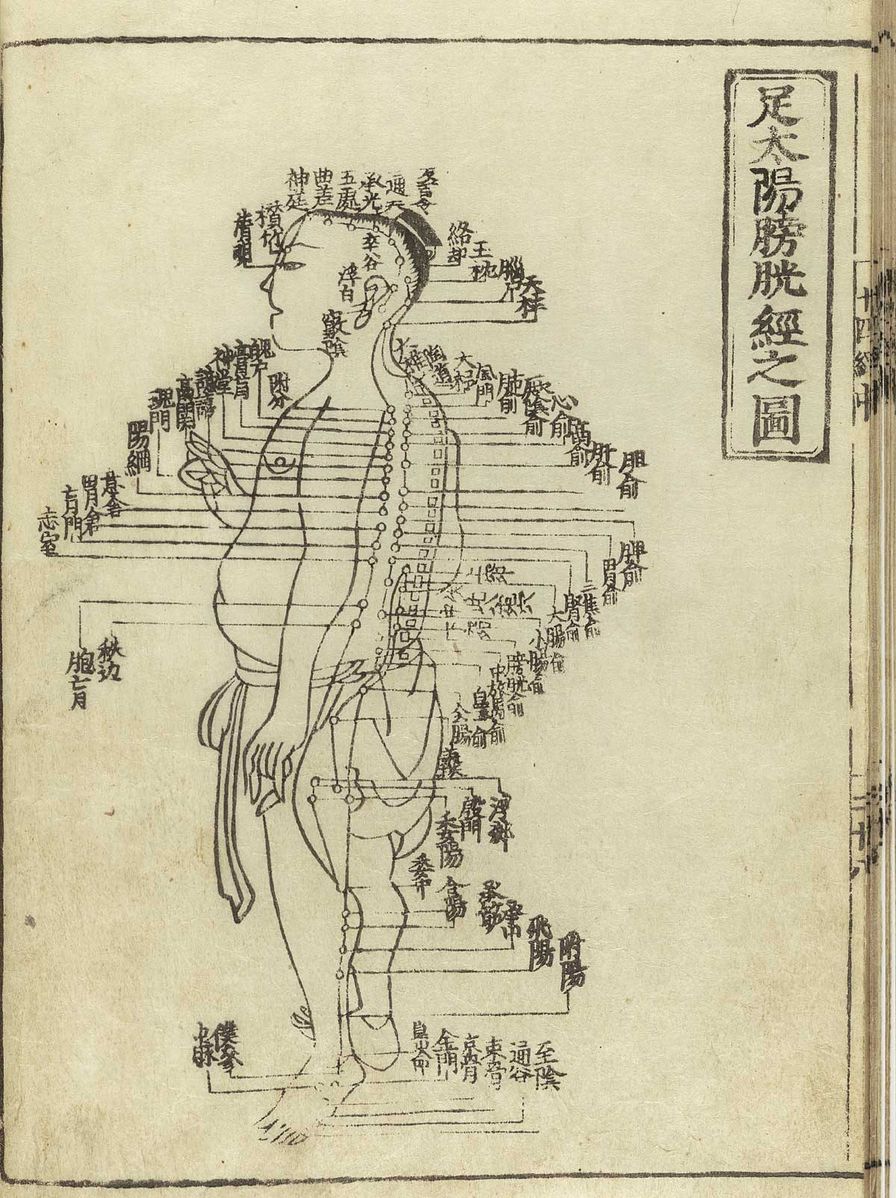 足太陽膀胱經之圖
至陰
通谷
束骨
京骨
金門
崑崙
僕參
申脉
通天
承光
五處
曲差
神庭
攅竹
睛明
絡却
玉枕
天柱
率谷
浮白
竅陰
陶道
大杼
風門
肺俞
心俞
膈俞
肝俞
胆俞
脾俞
胃俞
三焦俞
腎俞
大腸俞
小腸俞
膀胱俞
附分
魄户
膏肓
神堂
譩譆
膈関
魂門
陽綱
意舍
胃倉
肓門
志室
胞肓
秩边
殷門
浮郄
委陽
委中
合陽
承筋
飛陽
跗陽